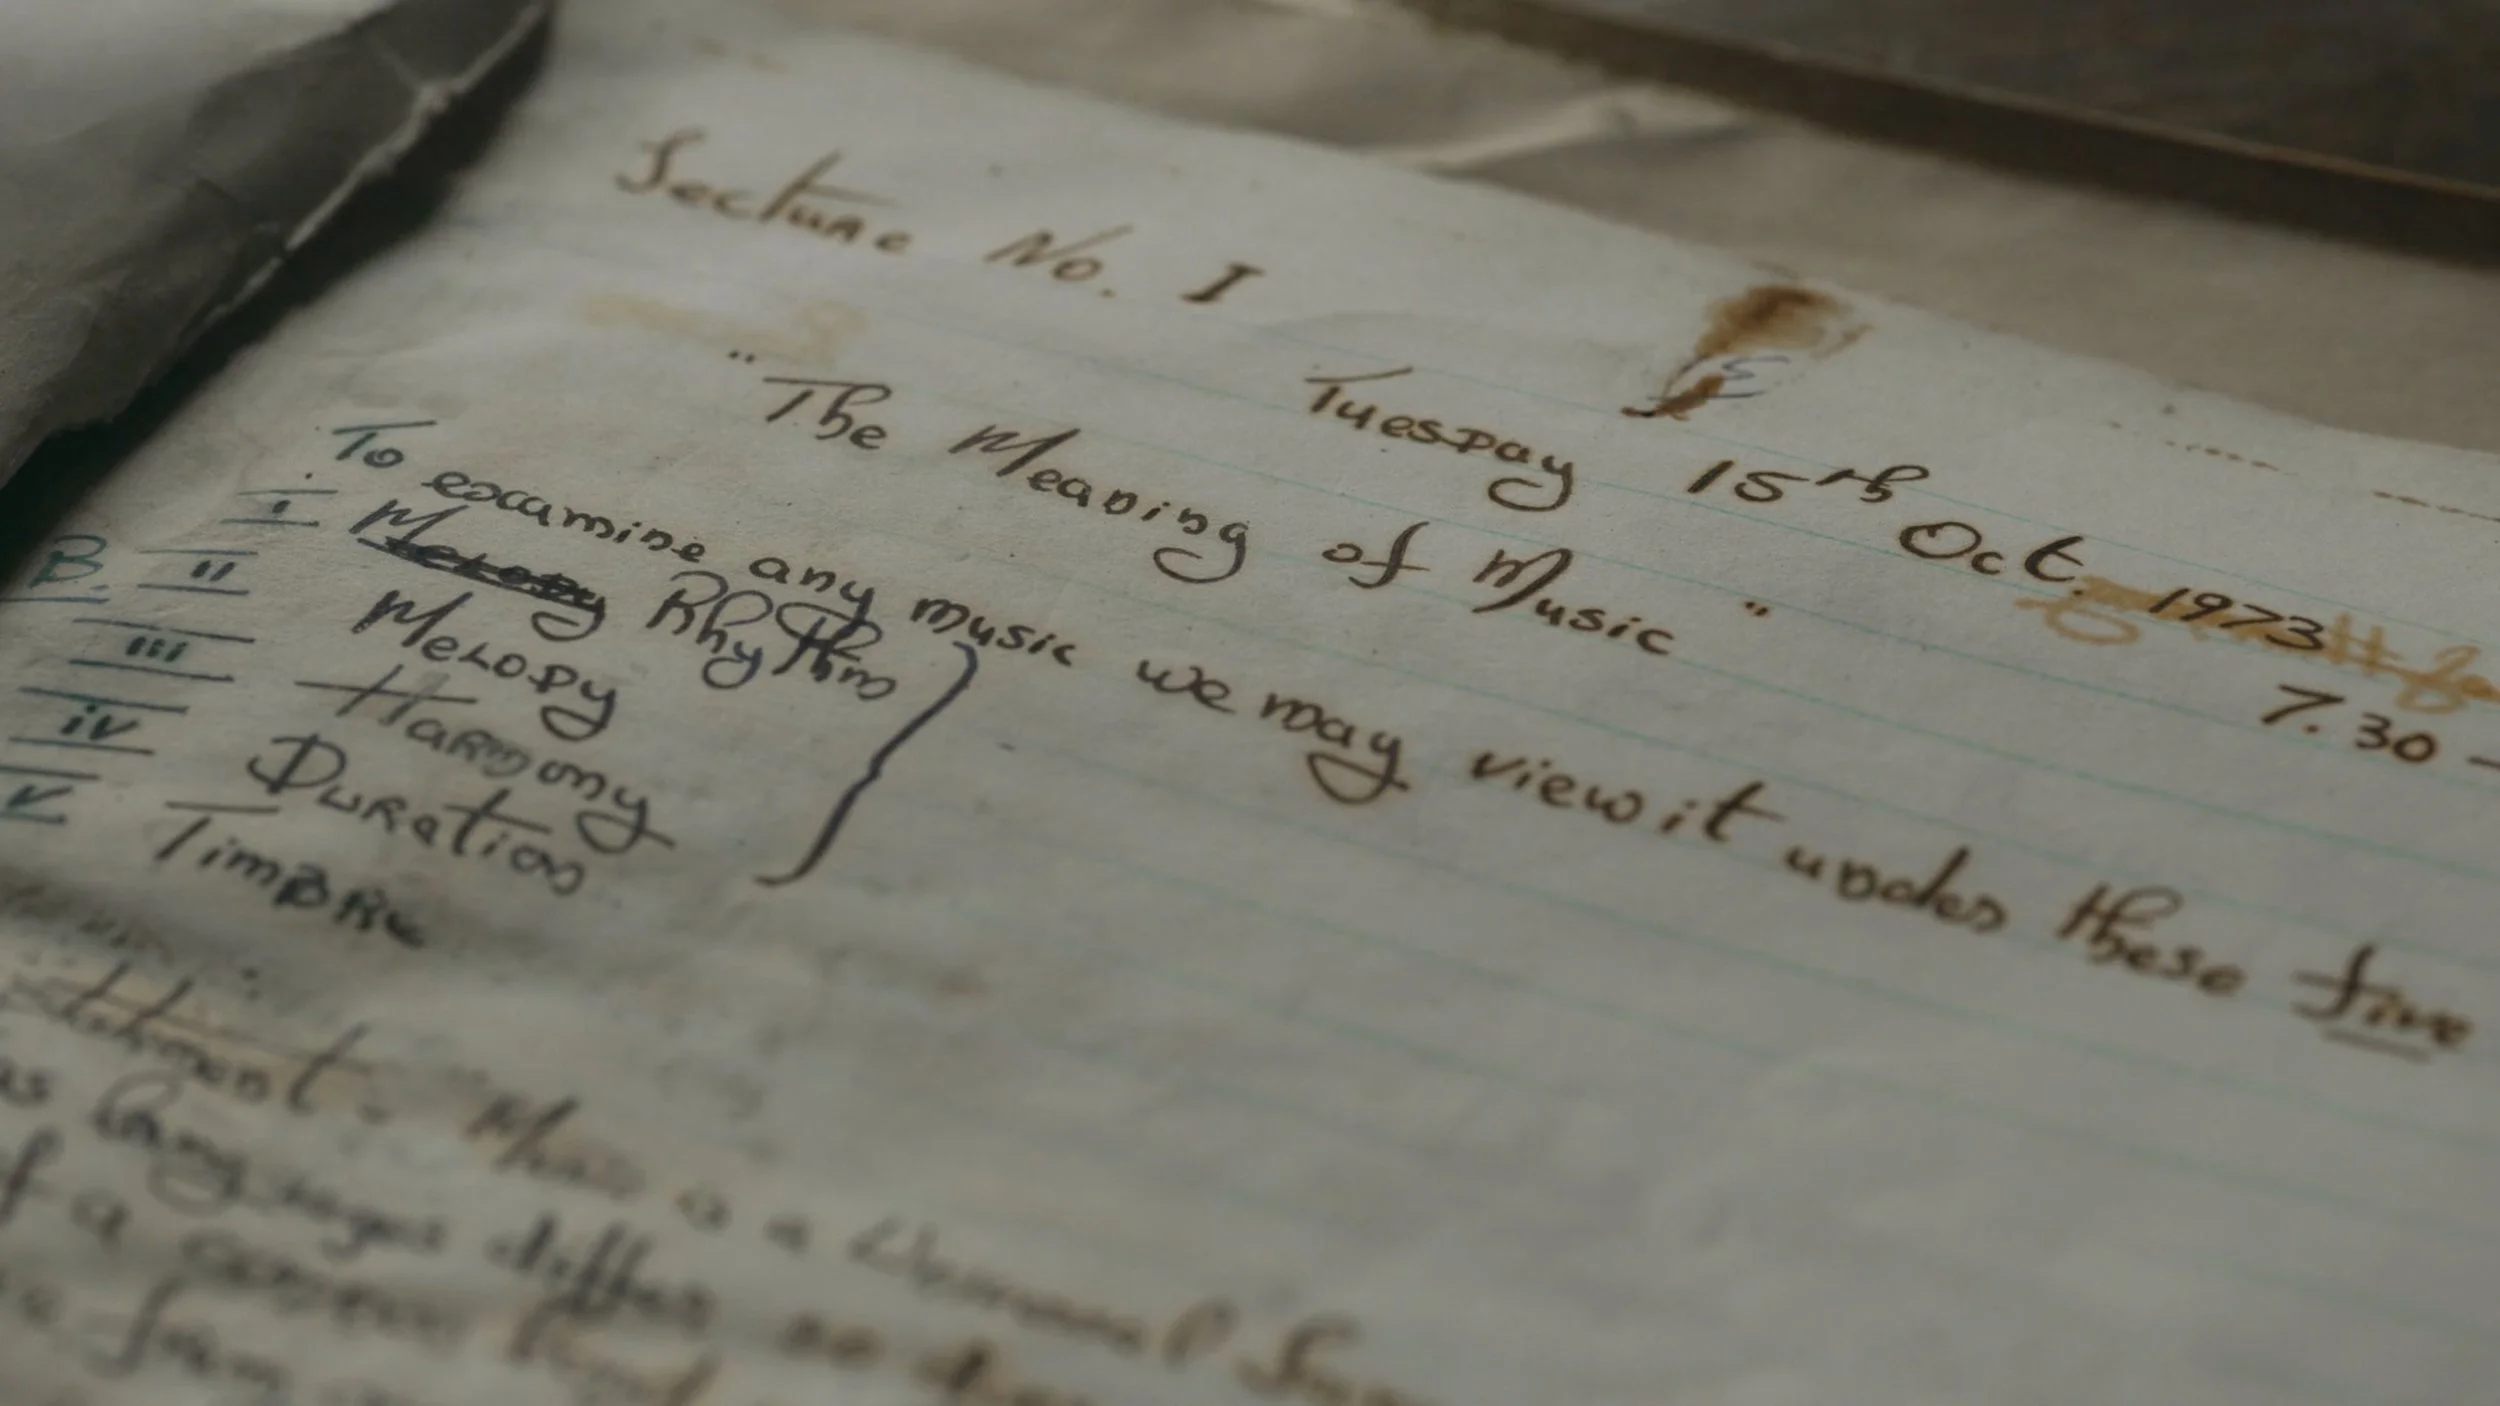 Lecture No. I
Tuesday 15th Oct. 1973
7.30 -
"The Meaning of Music"
To examine any music we may view it under these five
i Melody Rhythm
B. ii Melody
iii Harmony
iv Duration
v Timbre
Music is a Universal
as languages differ so
of a